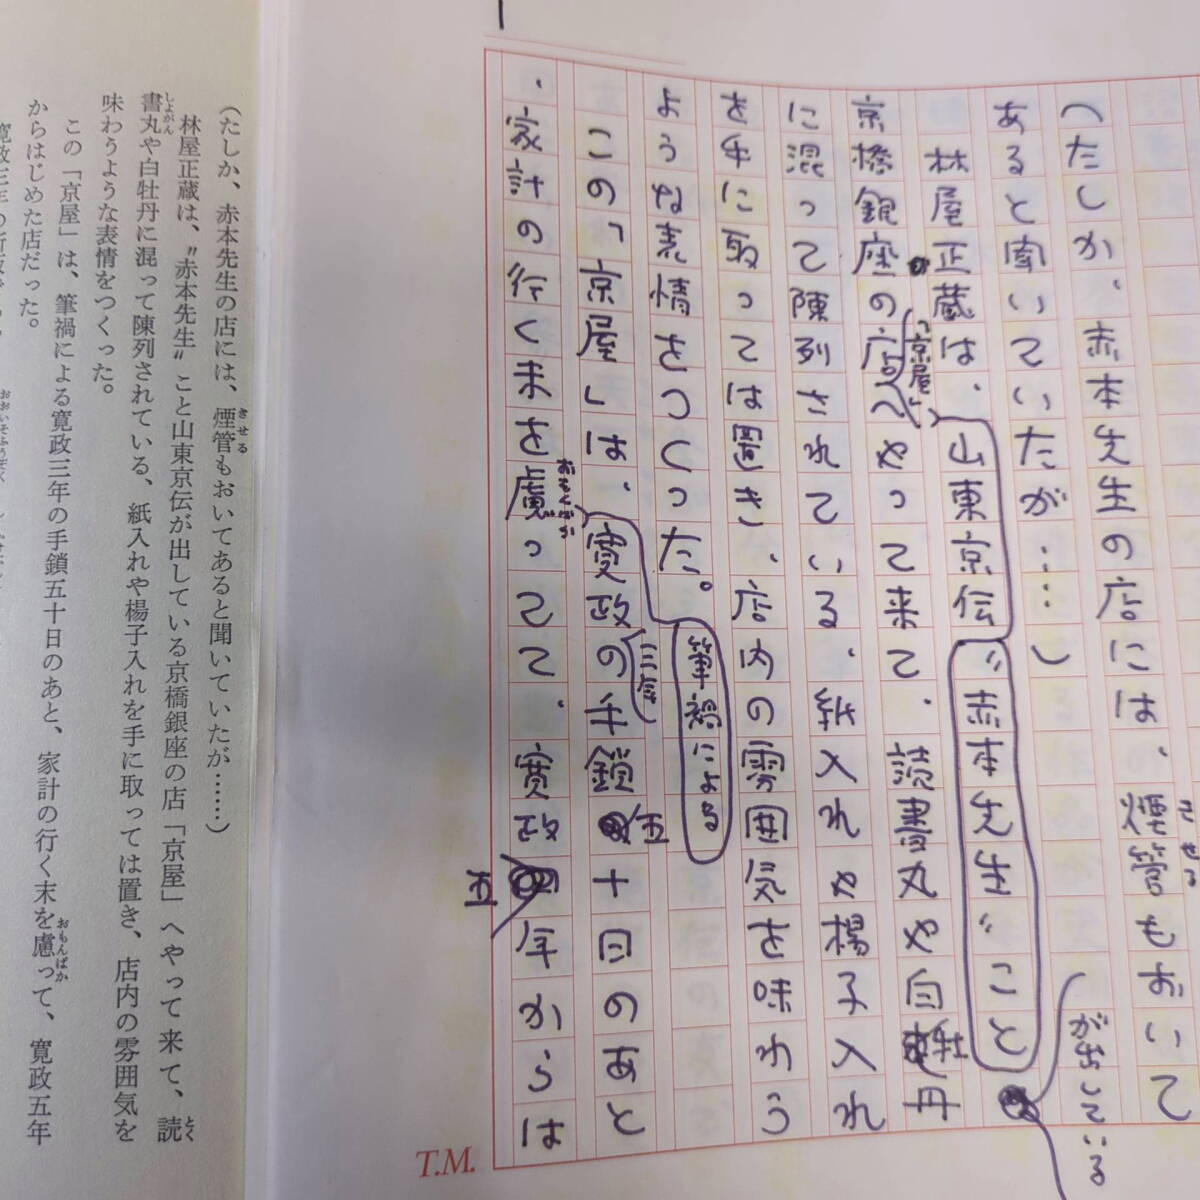 (たしか、赤本先生の店には、煙管もおいて
きせる
あると聞いていたが……)
林屋正蔵は、山東京伝〝赤本先生〟こと
が出している
京橋銀座の店へやって来て、読書丸や白牡丹
「京屋」
に混って陳列されている、紙入れや楊子入れ
を手に取っては置き、店内の雰囲気を味わう
ような表情をつくった。
筆禍による
この「京屋」は、寛政の手鎖五十日のあと
三年
、家計の行く末を慮って、寛政五年からは
おもんばか
T.M.
(たしか、赤本先生の店には、煙管もおいてあると聞いていたが……)
きせる
林屋正蔵は、〝赤本先生〟こと山東京伝が出している京橋銀座の店「京屋」へやって来て、読
とく
書丸や白牡丹に混って陳列されている、紙入れや楊子入れを手に取っては置き、店内の雰囲気を
しょがん
味わうような表情をつくった。
この「京屋」は、筆禍による寛政三年の手鎖五十日のあと、家計の行く末を慮って、寛政五年
おもんばか
からはじめた店だった。